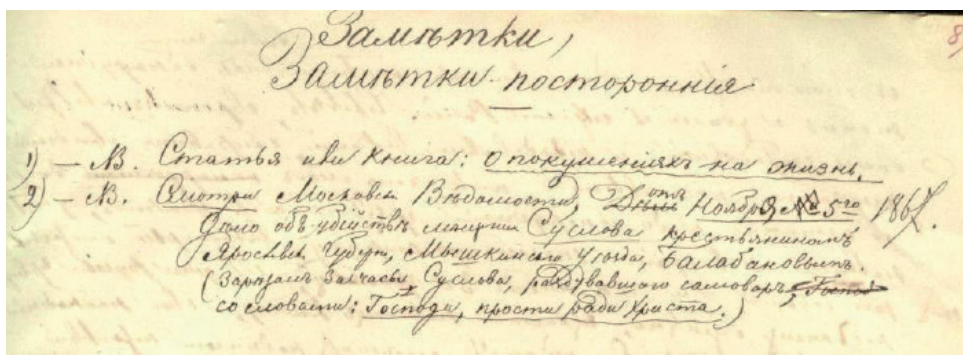 Замѣтки,
Замѣтки постороннія
8
1) — NB. Статья или книга: о покушеніяхъ на жизнь.
2) — NB. Смотри Московск Вѣдомости, отъ Ноября 5го 1867.
Дѣло объ убійствѣ мещанина Суслова крестьяниномъ
Ярославск губерн, Мышкинскаго Уѣзда, Балабановымъ.
(Зарѣзалъ за часы, Суслова, раздувавшаго самоваръ,
со словами: Господи, прости ради Христа.)